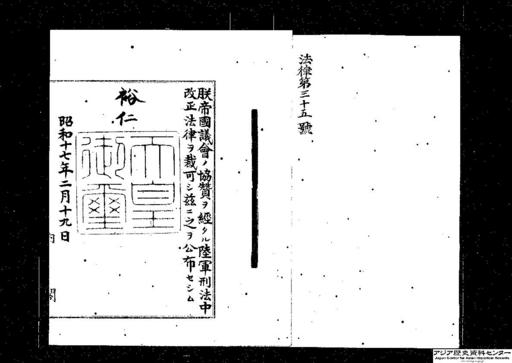 法律第三十五號
朕帝國議會ノ協贊ヲ經タル陸軍刑法中
改正法律ヲ裁可シ玆ニ之ヲ公布セシム
裕仁
天皇御璽
昭和十七年二月十九日
內閣
アジア歴史資料センター
Japan Center for Asian Historical Records